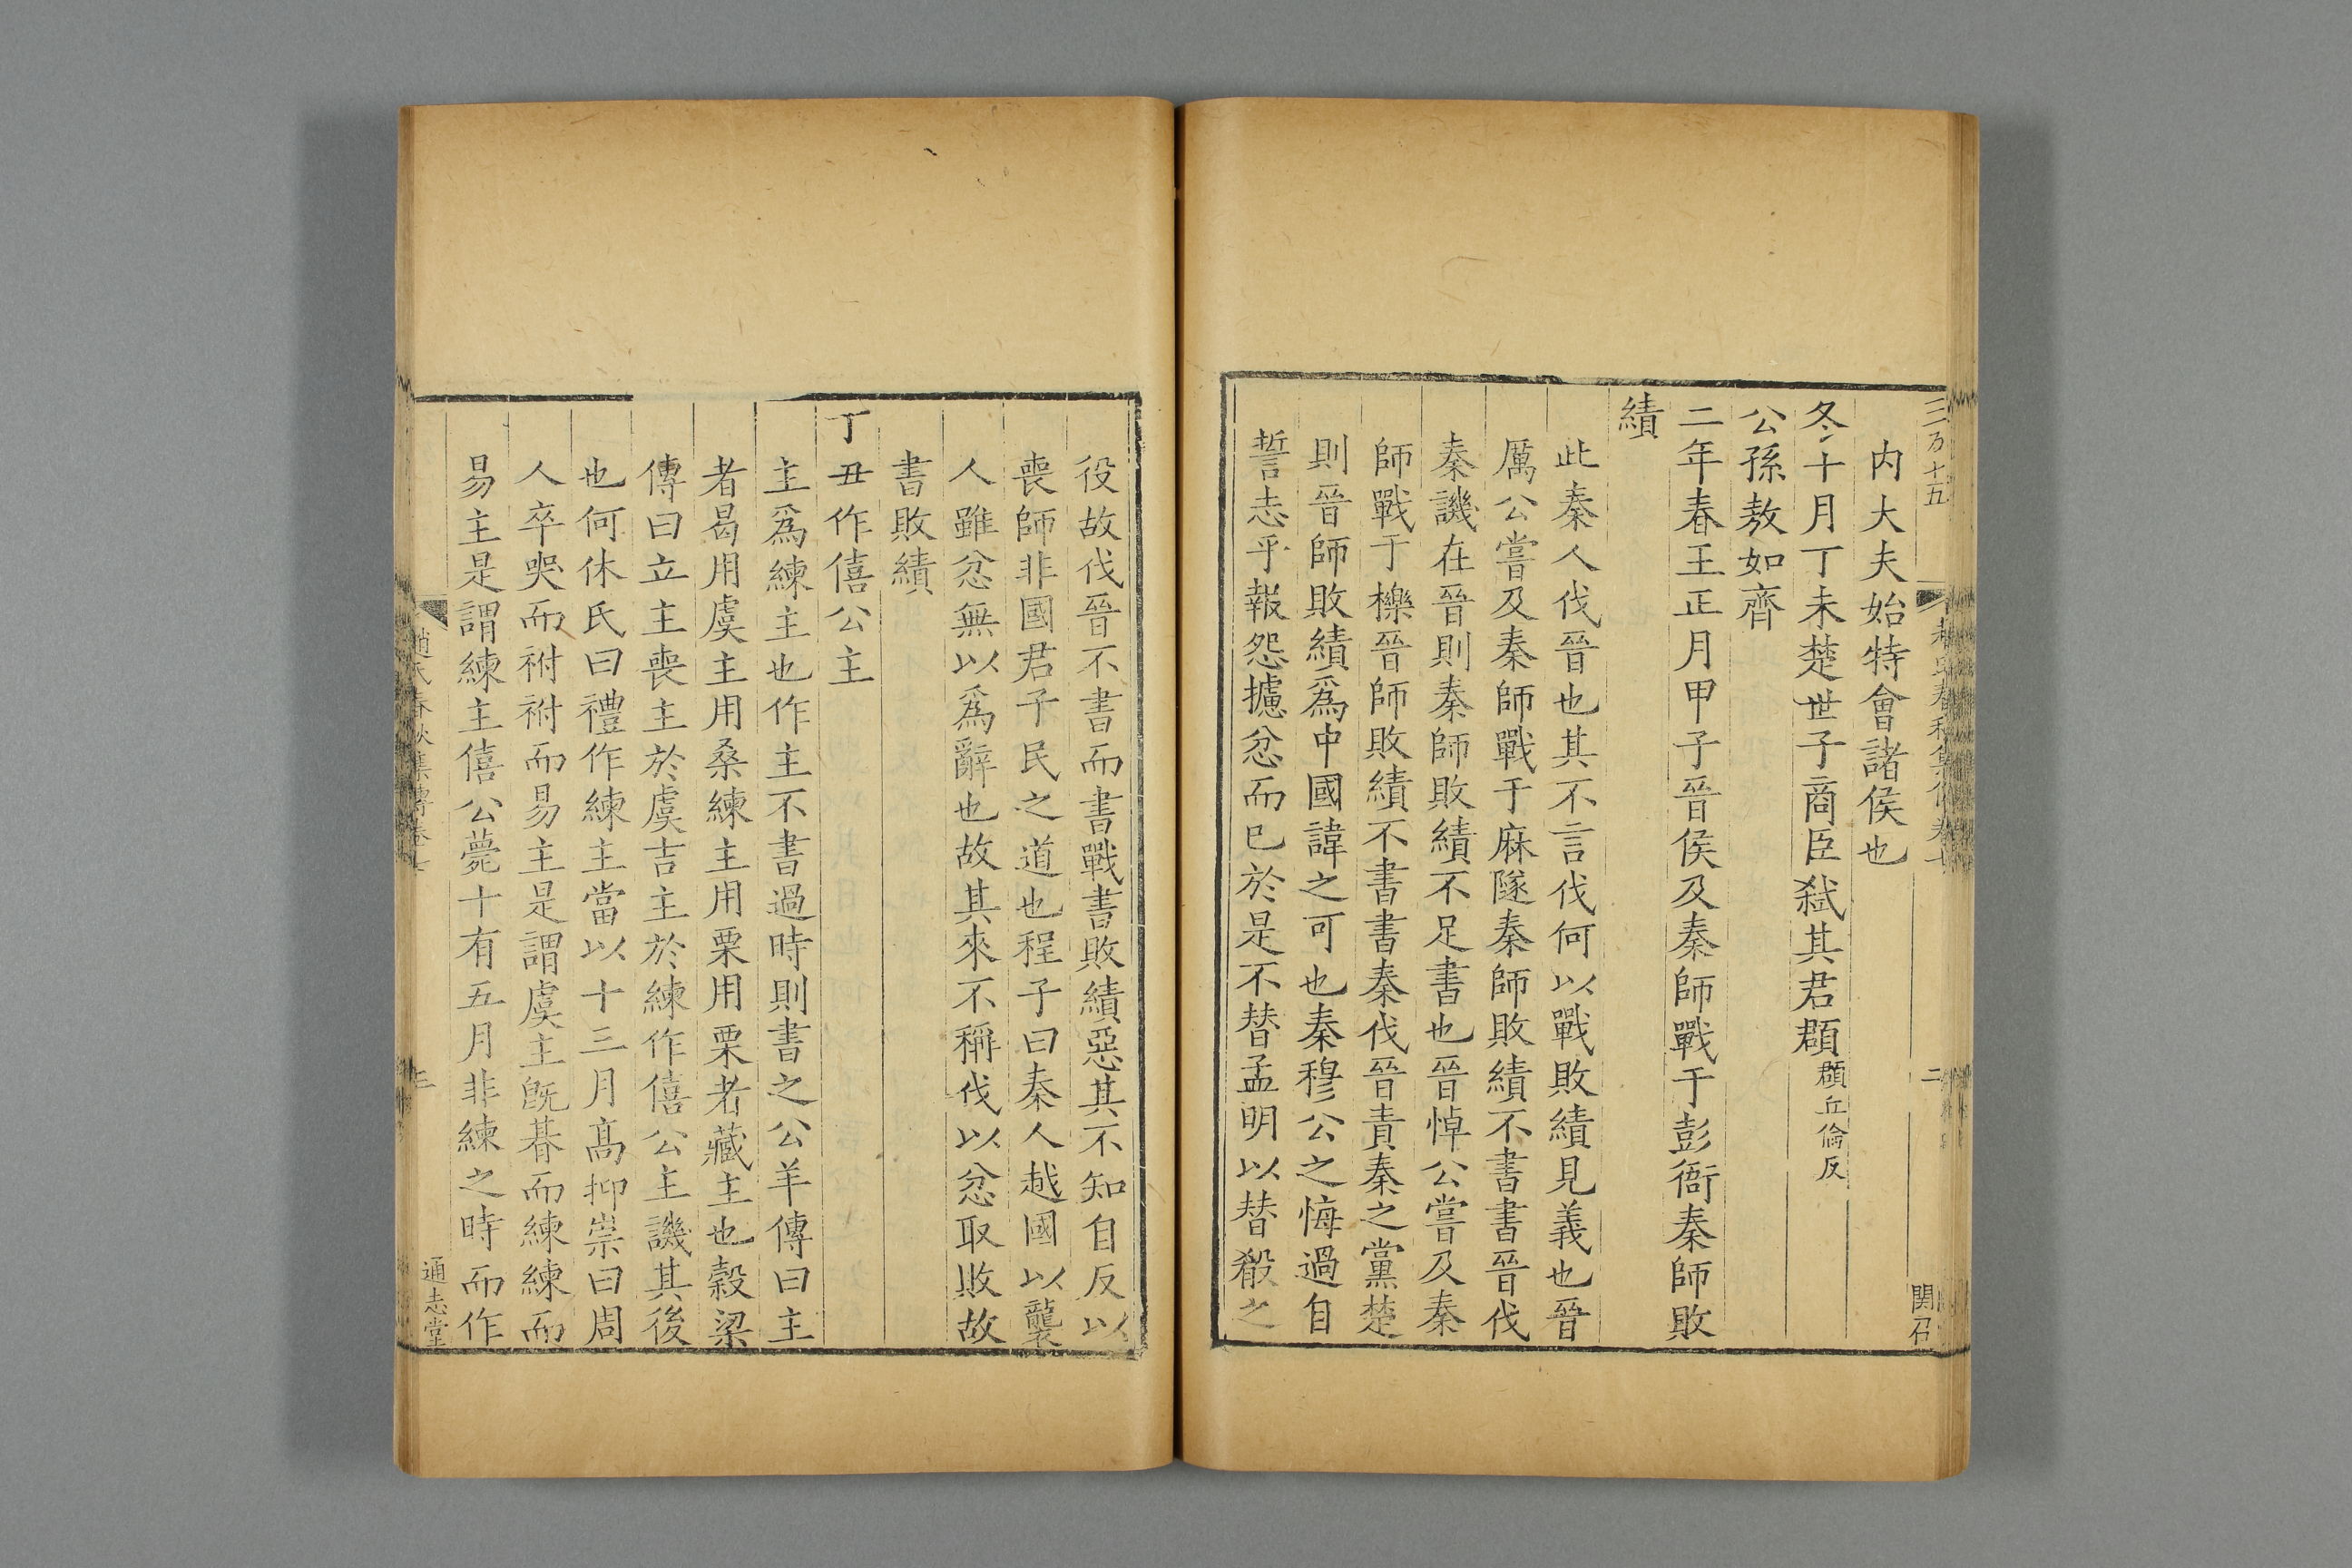 内大夫始特會諸侯也
冬十月丁未楚世子商臣弑其君頵頵丘倫反
公孫敖如齊
二年春王正月甲子晉侯及秦師戰于彭衙秦師敗
績
此秦人伐晉也其不言伐何以戰敗績見義也晉
厲公嘗及秦師戰于麻隧秦師敗績不書書晉伐
秦譏在晉則秦師敗績不足書也晉悼公嘗及秦
師戰于櫟晉師敗績不書書秦伐晉責秦之黨楚
則晉師敗績爲中國諱之可也秦穆公之悔過自
誓志乎報怨攄忿而已於是不替孟明以替殽之
役故伐晉不書而書戰書敗績惡其不知自反以
喪師非國君子民之道也程子曰秦人越國以襲
人雖忿無以爲辭也故其來不稱伐以忿取敗故
書敗績
丁丑作僖公主
主爲練主也作主不書過時則書之公羊傳曰主
者曷用虞主用桑練主用栗用栗者藏主也穀梁
傳曰立主喪主於虞吉主於練作僖公主譏其後
也何休氏曰禮作練主當以十三月高抑崇曰周
人卒哭而祔祔而易主是謂虞主旣朞而練練而
易主是謂練主僖公薨十有五月非練之時而作
趙氏春秋集傳卷七
三
通志堂
三万十五
二
関召